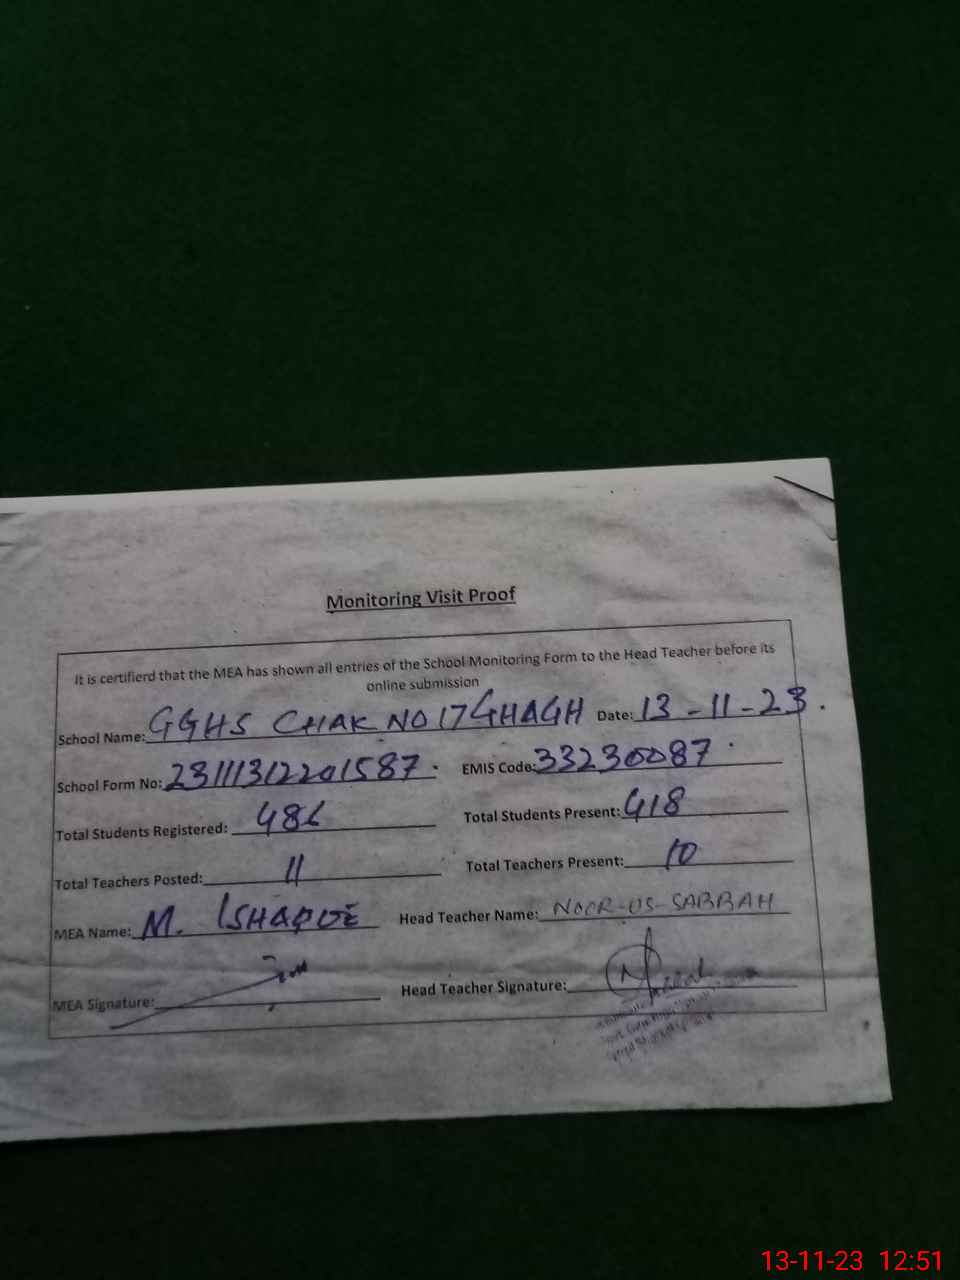 Monitoring Visit Proof
It is certifierd that the MEA has shown all entries of the School Monitoring Form to the Head Teacher before its
online submission
School Name: GGHS CHAK NO 17 GHAGH Date: 13-11-23.
School Form No: 23111312201587. EMIS Code: 33230087.
Total Students Registered: 486 Total Students Present: 418
Total Teachers Posted: 11 Total Teachers Present: 10
MEA Name: M. ISHAQUE Head Teacher Name: NOOR-US-SABBAH
MEA Signature: Head Teacher Signature:
13-11-23 12:51